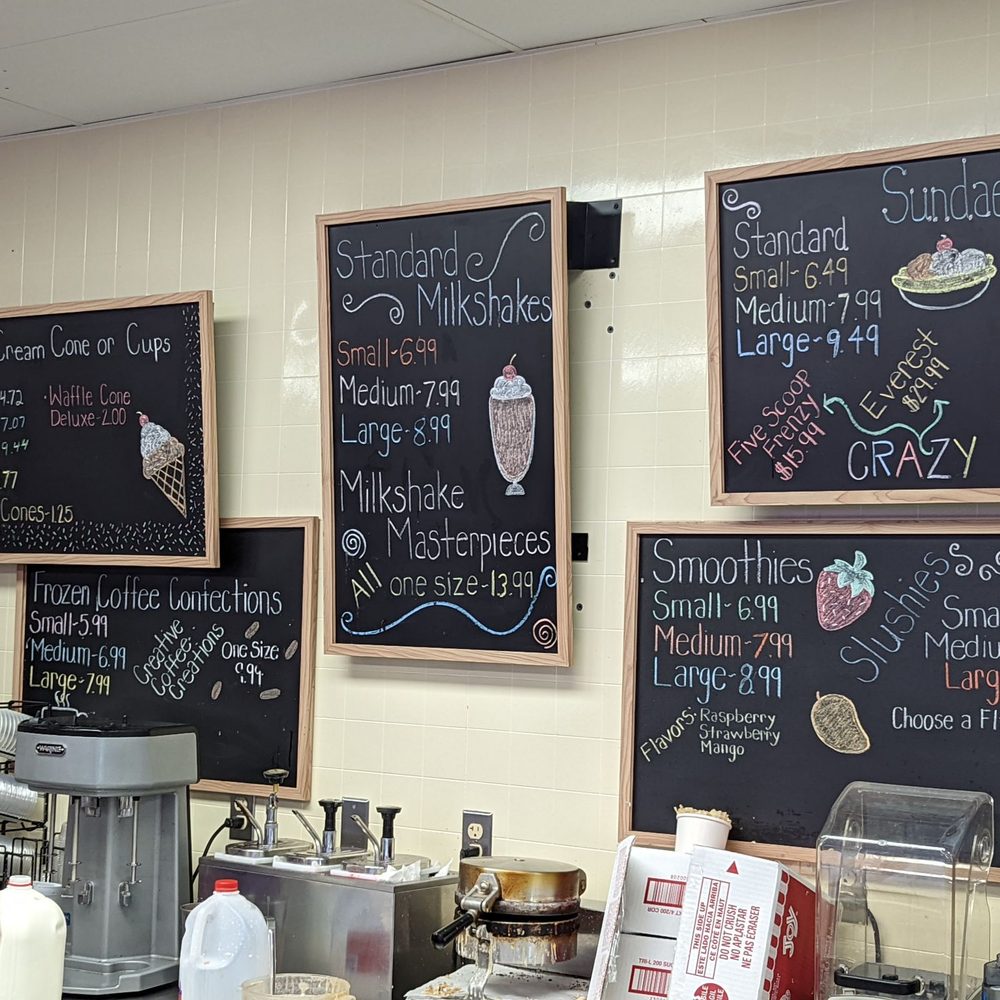 Cream Cone or Cups
4.72
7.07
9.44
.77
Waffle Cone
Deluxe-2.00
Cones-1.25
Frozen Coffee Confections
Small-5.99
Medium-6.99
Large-7.99
Creative
Coffee
Creations
One Size
Standard
Milkshakes
Small-6.99
Medium-7.99
Large-8.99
Milkshake
Masterpieces
All one size-13.99
Sundae
Standard
Small-6.49
Medium-7.99
Large-9.49
Five Scoop
Frenzy
$15.99
Everest
$29.99
CRAZY
Smoothies
Small-6.99
Medium-7.99
Large-8.99
Flavors: Raspberry
Strawberry
Mango
Slushies
Sma
Mediu
Larg
Choose a Fl
WARING
THIS SIDE UP
ESTE LADO HACIA ARRIBA
CE COTE EN HAUT
DO NOT CRUSH
NO APLASTAR
NE PAS ECRASER
JOY